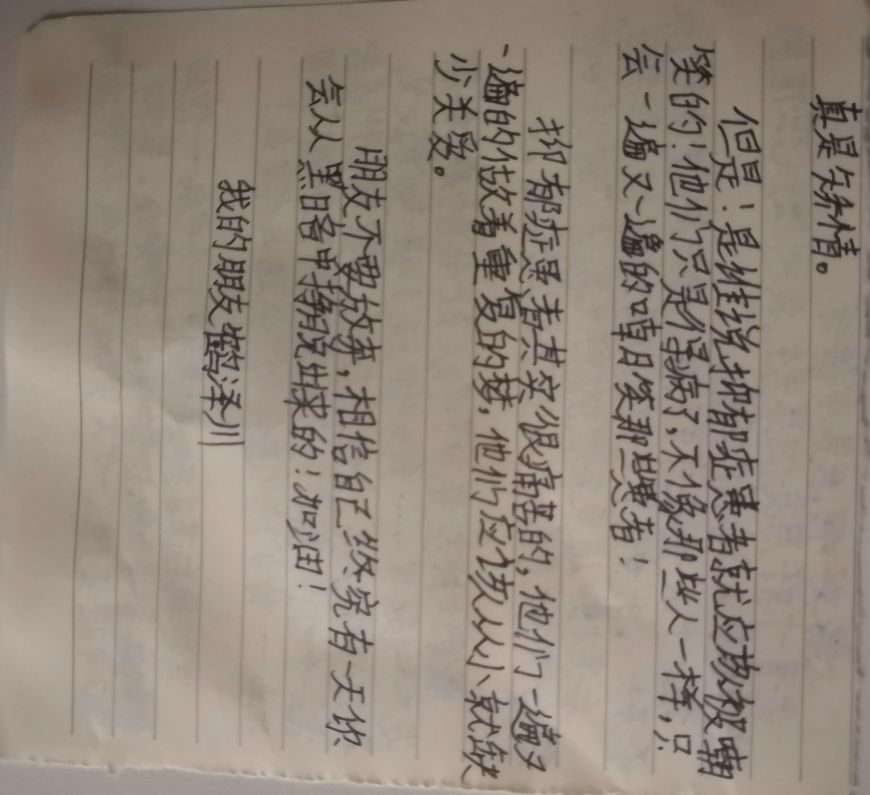 真是矫情。
但是!是谁说抑郁症患者就应该被嘲
笑的!他们只是得病了,不像那些人一样,只
会一遍又一遍的嘲笑那些患者!
抑郁症患者其实很痛苦的,他们一遍又
一遍的做着重复的梦,他们应该从小就缺
少关爱。
朋友不要放弃,相信自己终究有一天你
会从黑暗中挣脱出来的!加油!
我的朋友鹤泽川